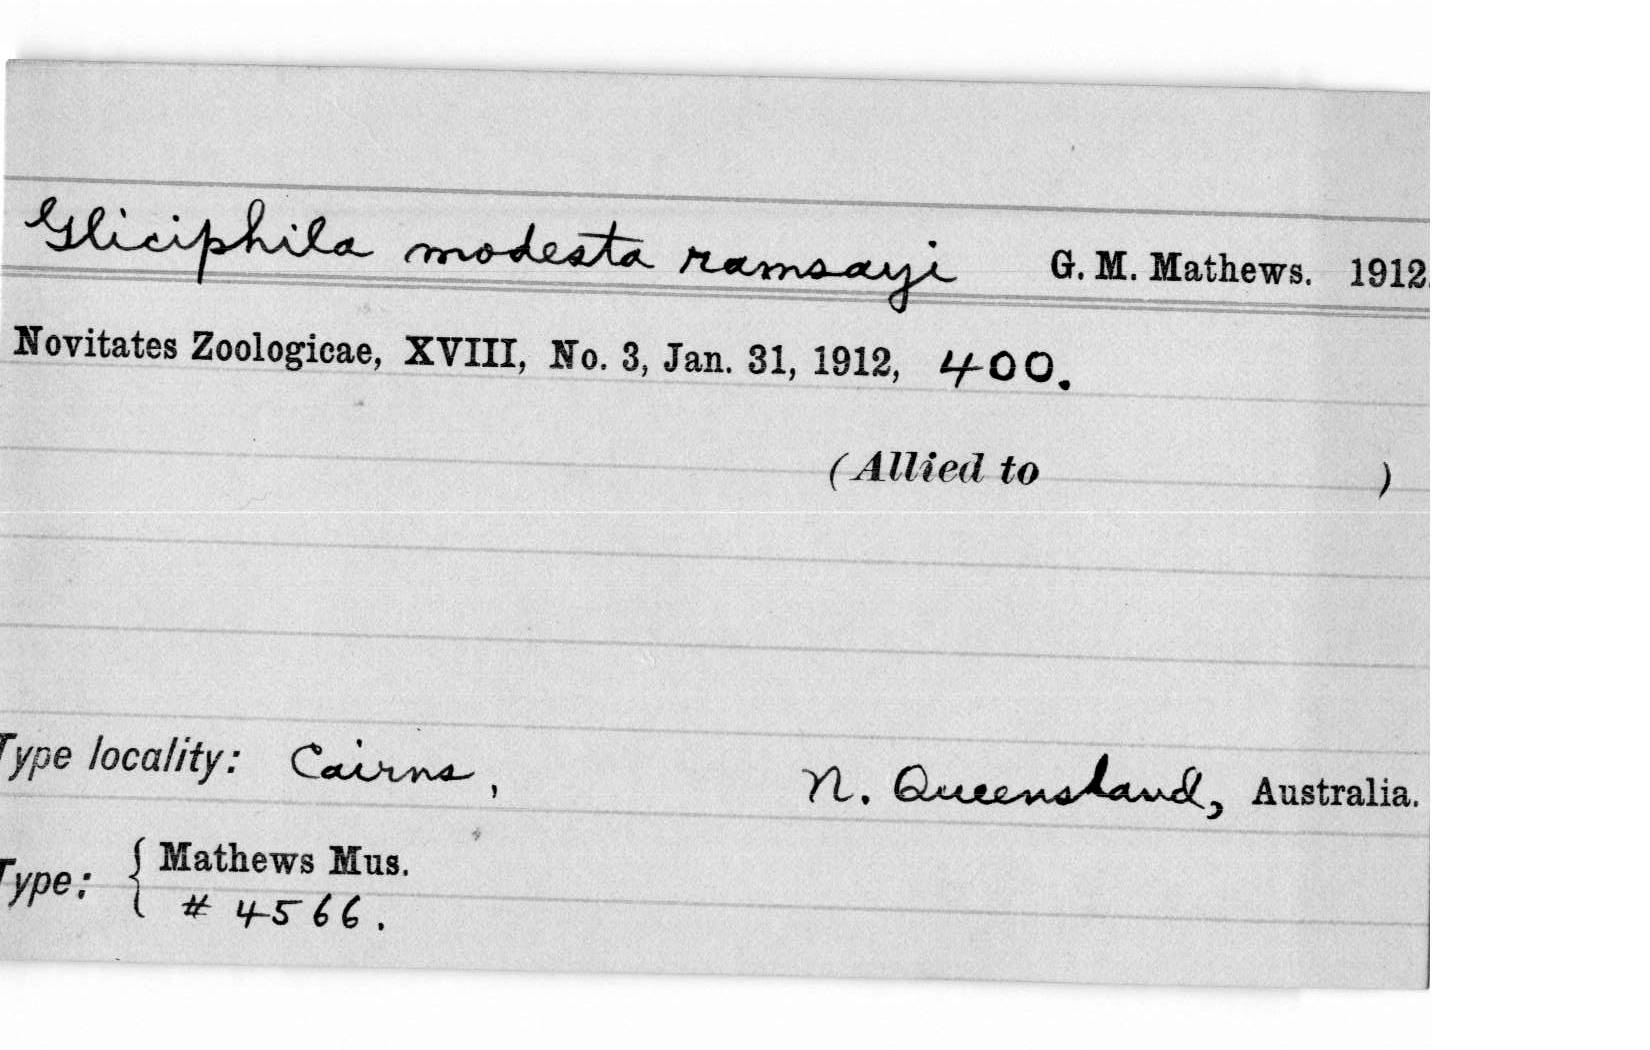 Gliciphila modesta ramsayi G. M. Mathews. 1912.
Novitates Zoologicae, XVIII, No. 3, Jan. 31, 1912, 400.
(Allied to )
Type locality: Cairns, N. Queensland, Australia.
Type: { Mathews Mus.
# 4566.